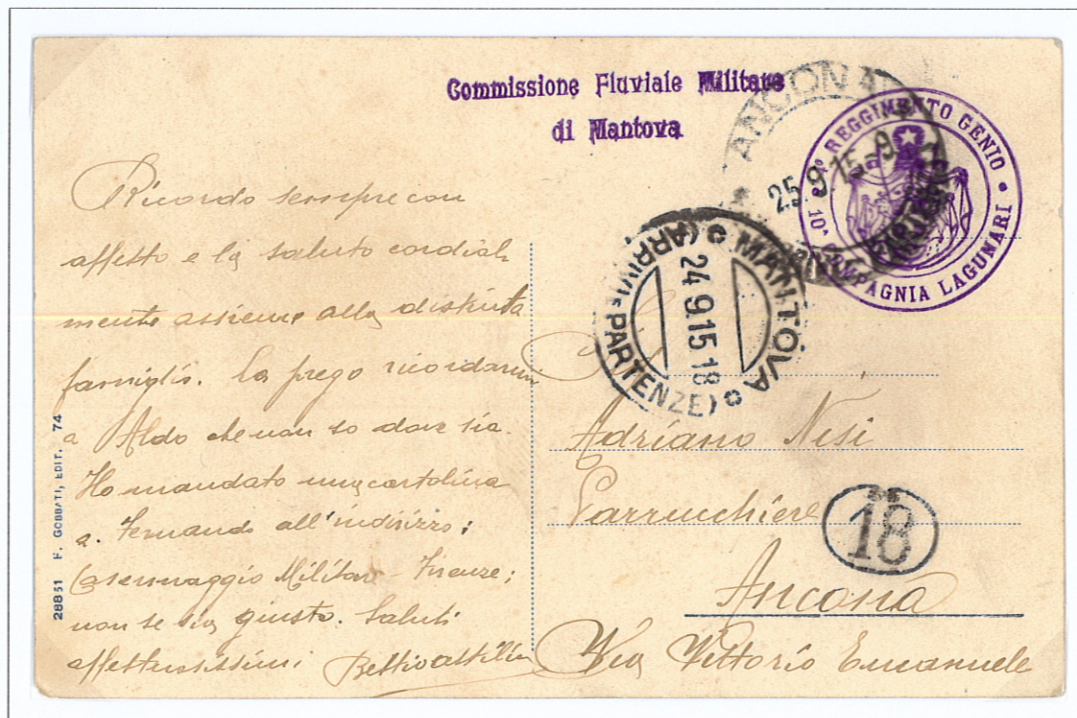 Commissione Fluviale Militare
di Mantova
ANCONA
25.9.15-9
2° REGGIMENTO GENIO
10ª COMPAGNIA LAGUNARI
MANTOVA
24 9.15 18
(ARRIVI E PARTENZE)
Ricordo sempre con
affetto e la saluto cordial
mente assieme alla distinta
famiglia. La prego ricordarmi
a Aldo che non so dove sia.
Ho mandato una cartolina
a Fernando all'indirizzo:
Casermaggio Militare - Firenze;
non so sia giusto. Saluti
affettuosissimi
Adriano Nisi
Parrucchiere
18
Ancona
Via Vittorio Emanuele
28851 F. GOBBATI, EDIT. 74